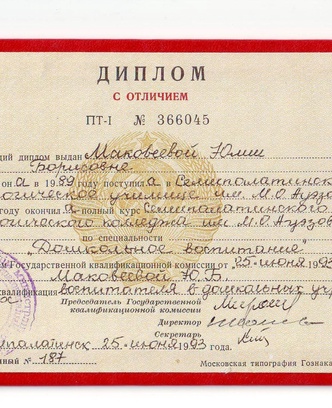 ДИПЛОМ
С ОТЛИЧИЕМ
ПТ-I № 366045
щий диплом выдан Маковеевой Юлии
Борисовне
он а в 1989 году поступил а Семипалатинск
огическое училище им. М.О. Ауэзо
году окончил а полный курс Семипалатинского
огического колледжа им. М.О. Ауэзов
по специальности
"Дошкольное воспитание"
м Государственной квалификационной комиссии от "25" июня 1993
Маковеевой Ю.Б.
квалификация воспитателя в дошкольных учр
Председатель Государственной
квалификационной комиссии
Директор
Секретарь
ипалатинск 25 июня 1993 году
ный № 187
Московская типография Гознака